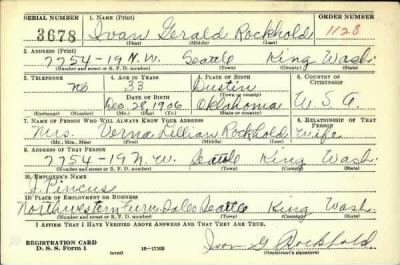 SERIAL NUMBER 1. NAME (Print) ORDER NUMBER
3678 Ivan Gerald Rockhold 1128
(First) (Middle) (Last)
2. ADDRESS (Print)
7754-19 N.W. Seattle King Wash.
(Number and street or R. F. D. number) (Town) (County) (State)
3. TELEPHONE 4. AGE IN YEARS 5. PLACE OF BIRTH 6. COUNTRY OF CITIZENSHIP
no 33 Dustin
DATE OF BIRTH (Town or county)
Dec. 28, 1906 Oklahoma U.S.A.
(Mo.) (Day) (Yr.) (State or country)
7. NAME OF PERSON WHO WILL ALWAYS KNOW YOUR ADDRESS 8. RELATIONSHIP OF THAT PERSON
Mrs. Verna Lillian Rockhold wife
(Mr., Mrs., Miss) (First) (Middle) (Last)
9. ADDRESS OF THAT PERSON
7754-19 N.W. Seattle King Wash.
(Number and street or R. F. D. number) (Town) (County) (State)
10. EMPLOYER'S NAME
J. Pincus
11. PLACE OF EMPLOYMENT OR BUSINESS
Northwestern Furn. Seattle King Wash.
(Number and street or R. F. D. number) (Town) (County) (State)
I AFFIRM THAT I HAVE VERIFIED ABOVE ANSWERS AND THAT THEY ARE TRUE.
REGISTRATION CARD
D. S. S. Form 1 (over) Ivan G Rockhold
(Registrant's signature)